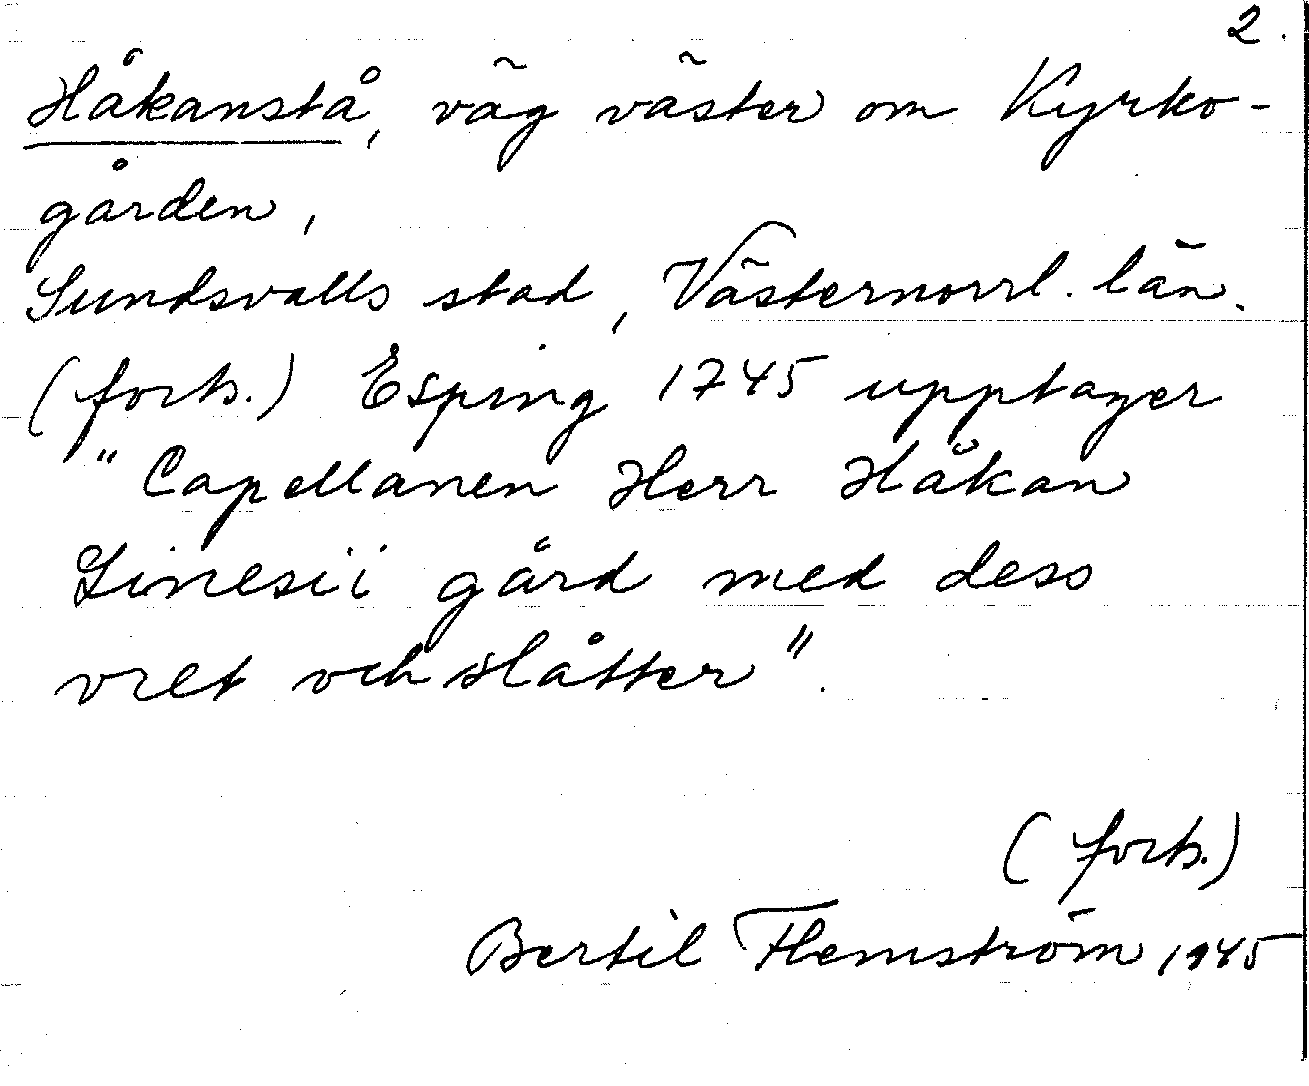 2.
Håkanstå, väg väster om Kyrko-
gården,
Sundsvalls stad, Västernorrl. län.
(forts.) Esping 1745 upptager
"Capellanen Herr Håkan
Linesii gård med dess
vret och slåtter".
(forts.)
Bertil Flemström 1945